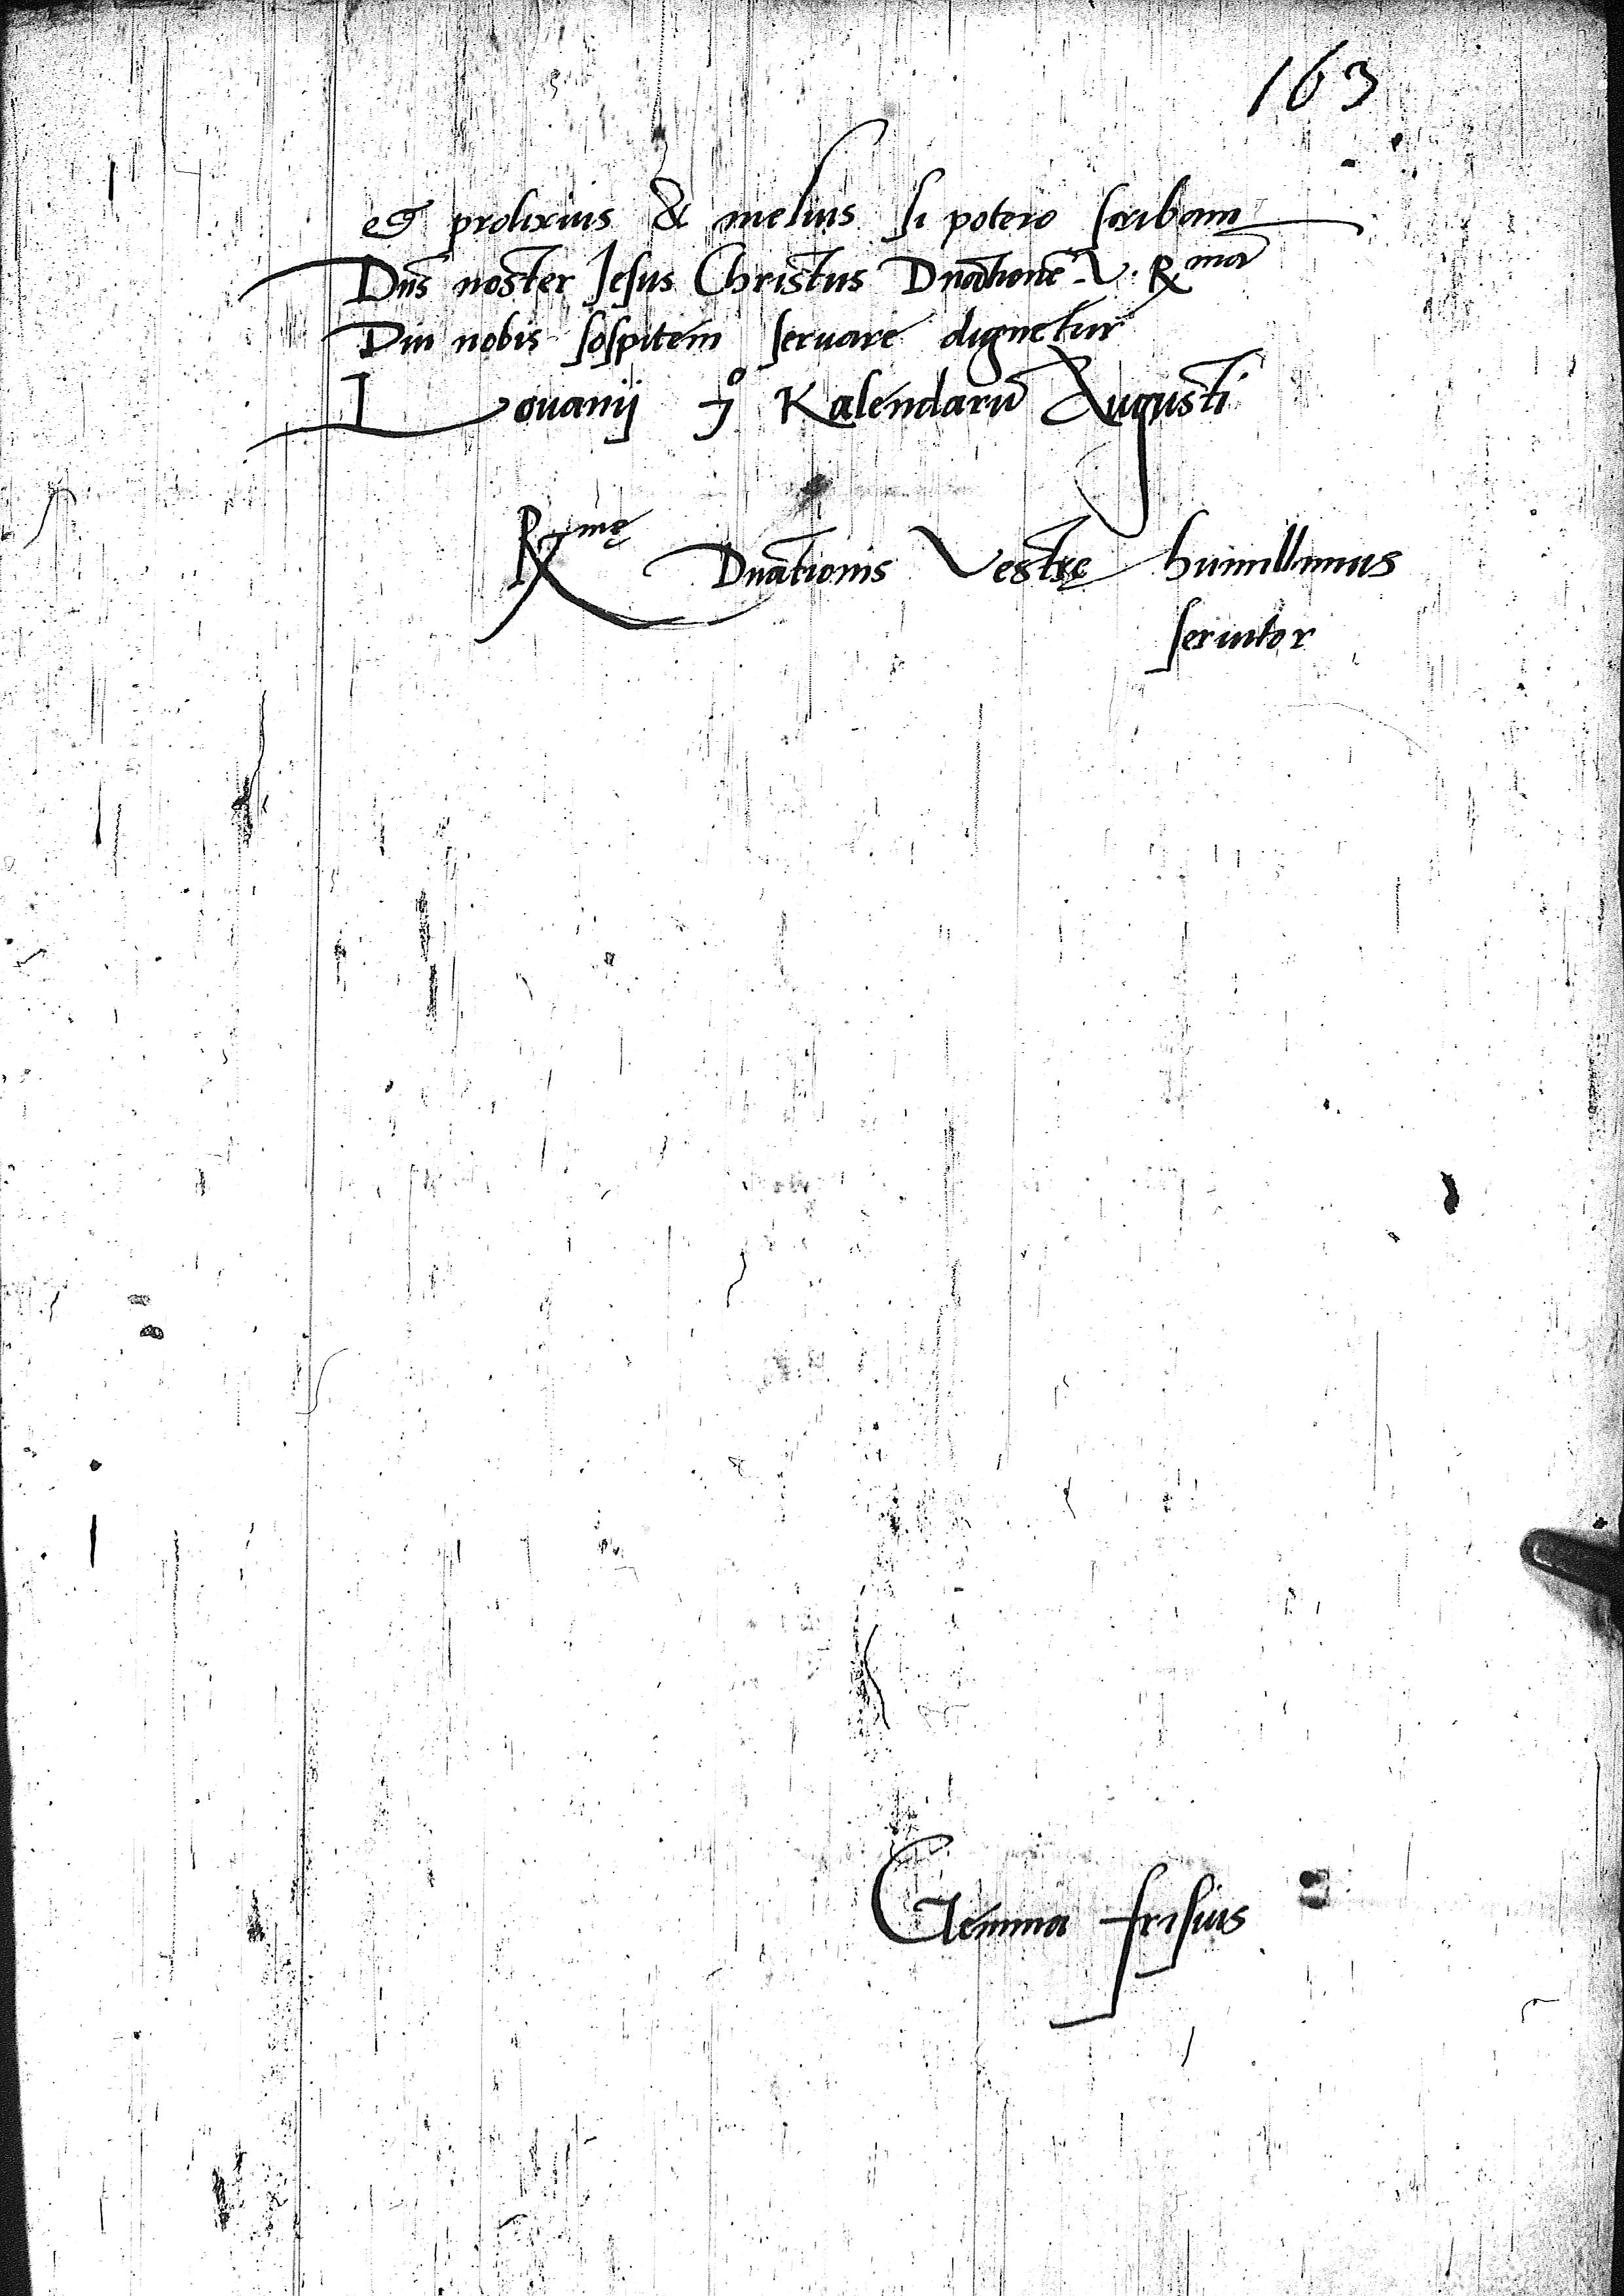 163
et prolixius & melius si potero scribam
Dns noster Jesus Christus Dnationē V. Rmā
Diu nobis sospitem seruare dignetur
Louanij Kalendarū Augusti
Rmę Dnationis Vestrę humillimus
seruitor
Gemma frisius